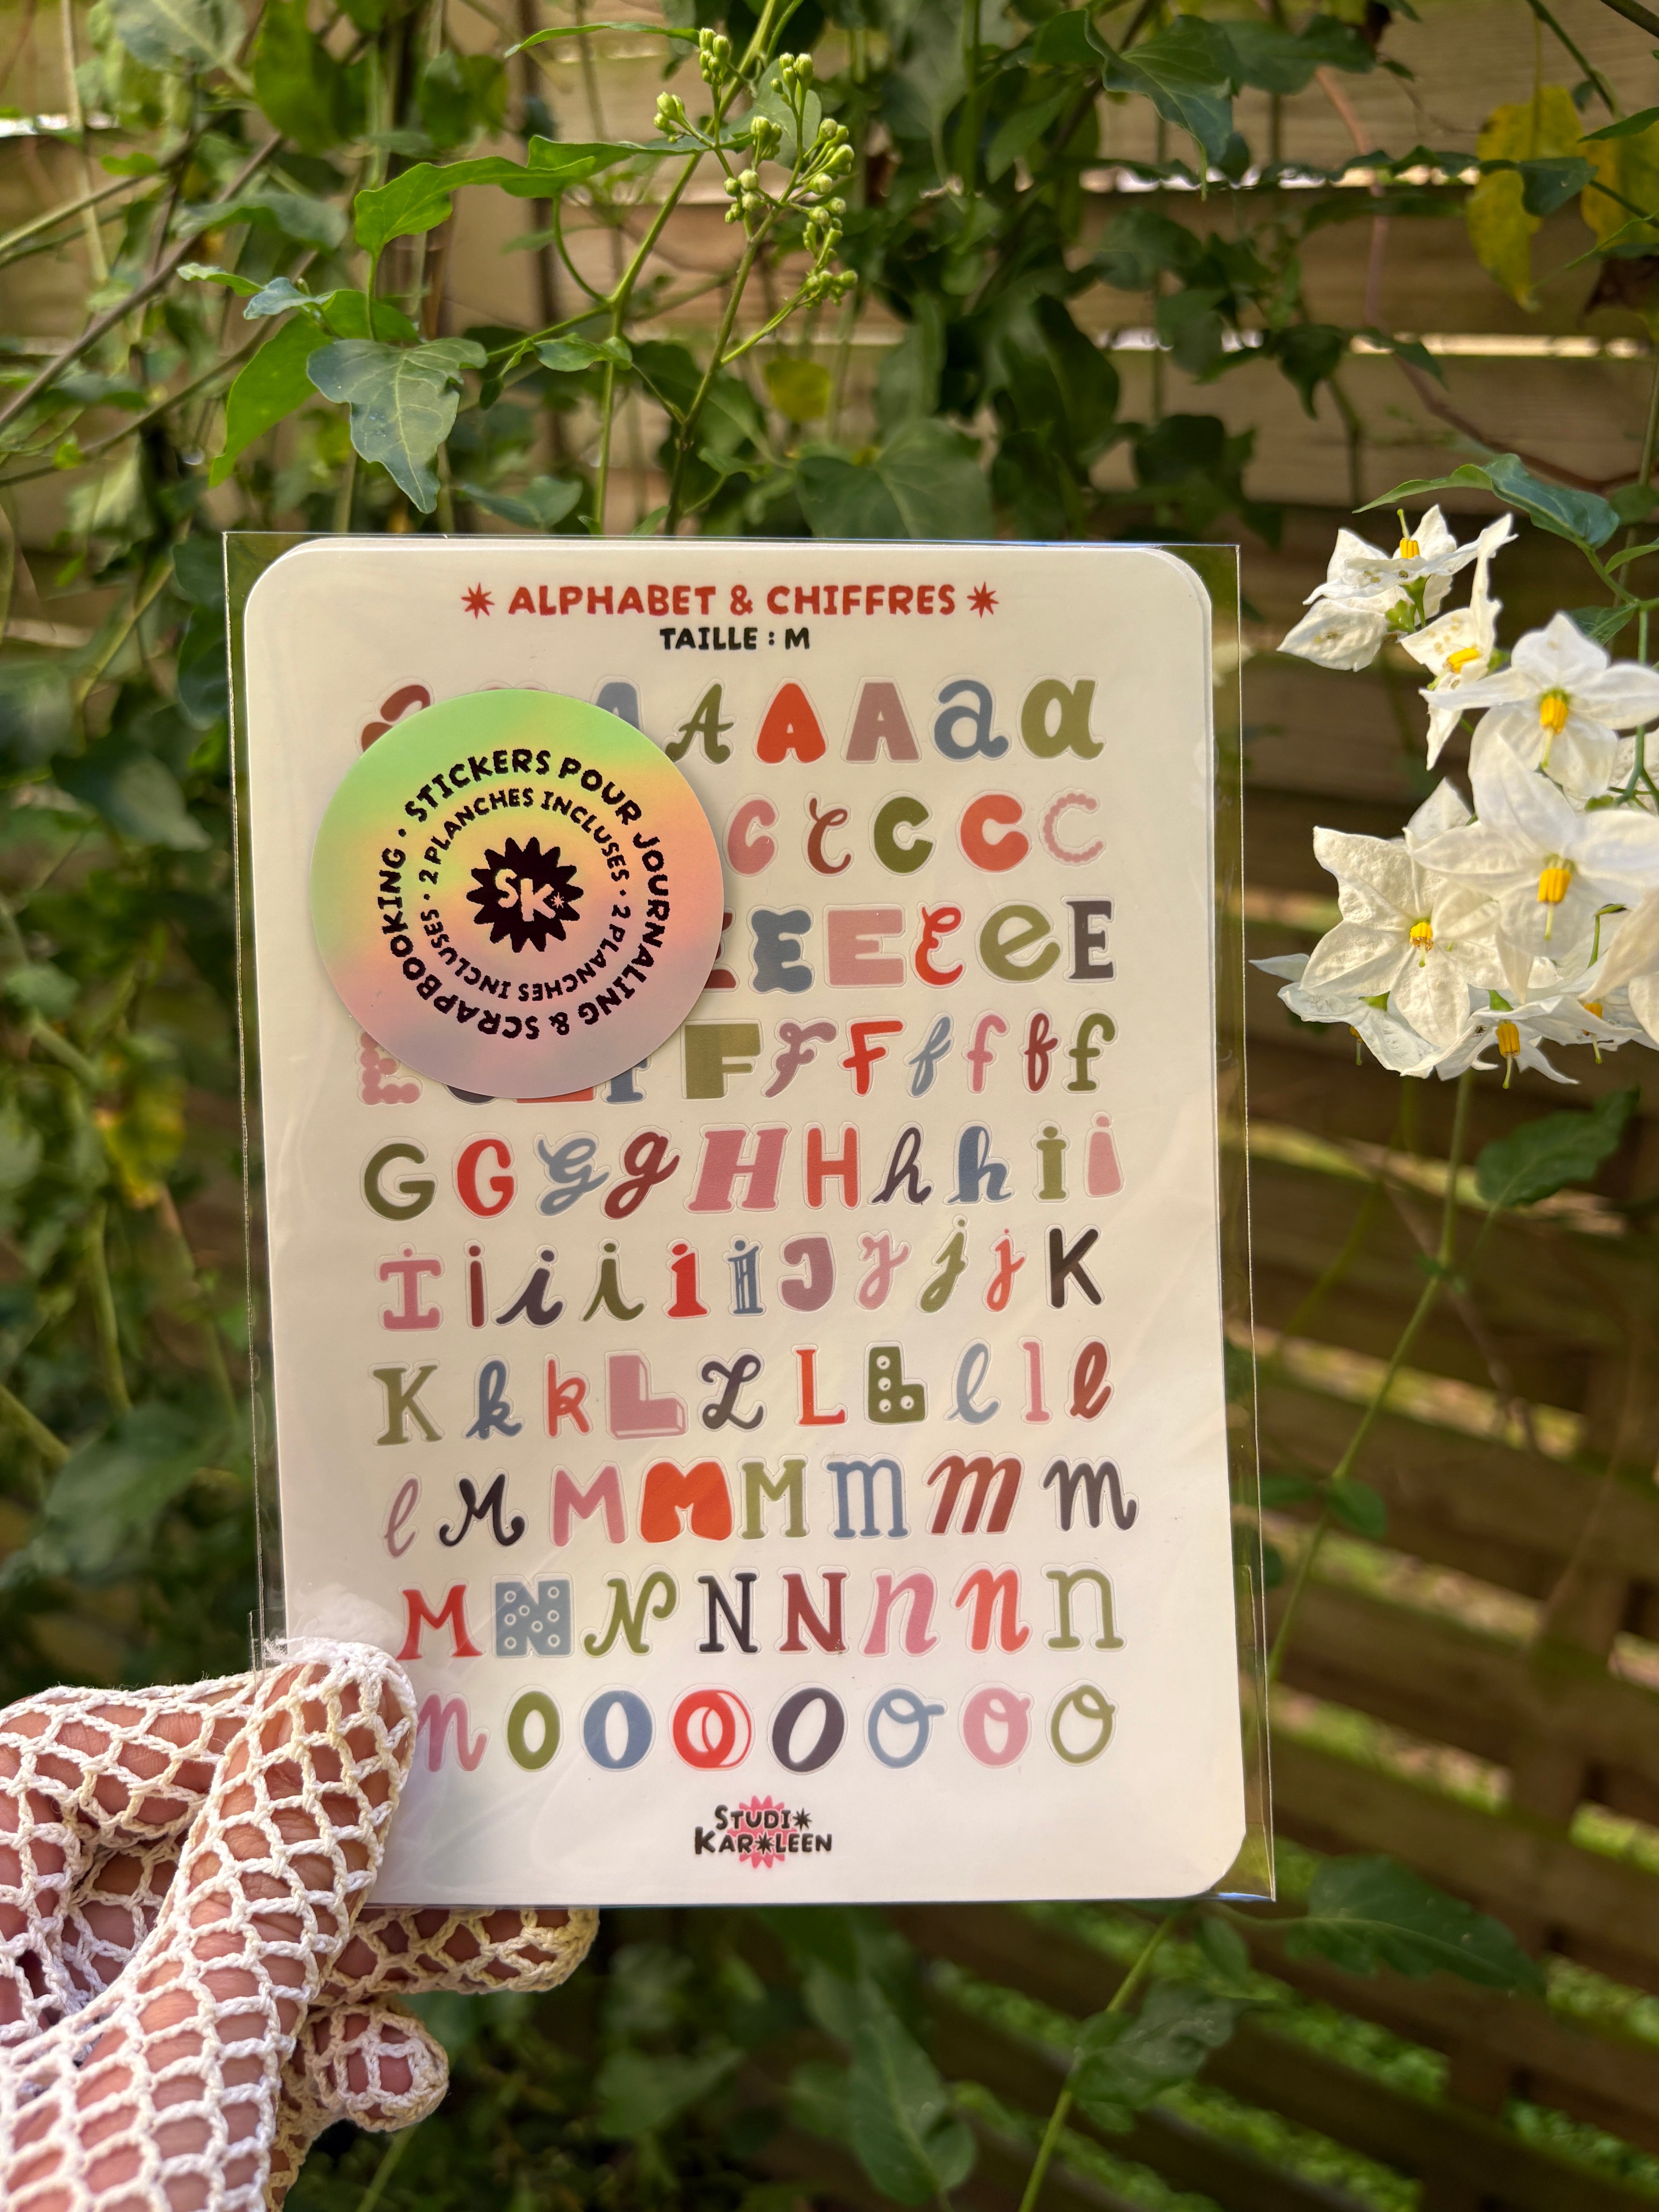 ✷ ALPHABET & CHIFFRES ✷
TAILLE : M
A A A A a a
STICKERS POUR JOURNALING & SCRAPBOOKING ·
2 PLANCHES INCLUSES · 2 PLANCHES INCLUSES ·
SK
C C C C C
E E E e E
F F F f f f f
G G G g H H h h i i
I i i i i i J J j j K
K k k L L L L l l l
l M M M M m m m
M N N N N n n n
n O O O O O O O
STUDIO
KAROLEEN